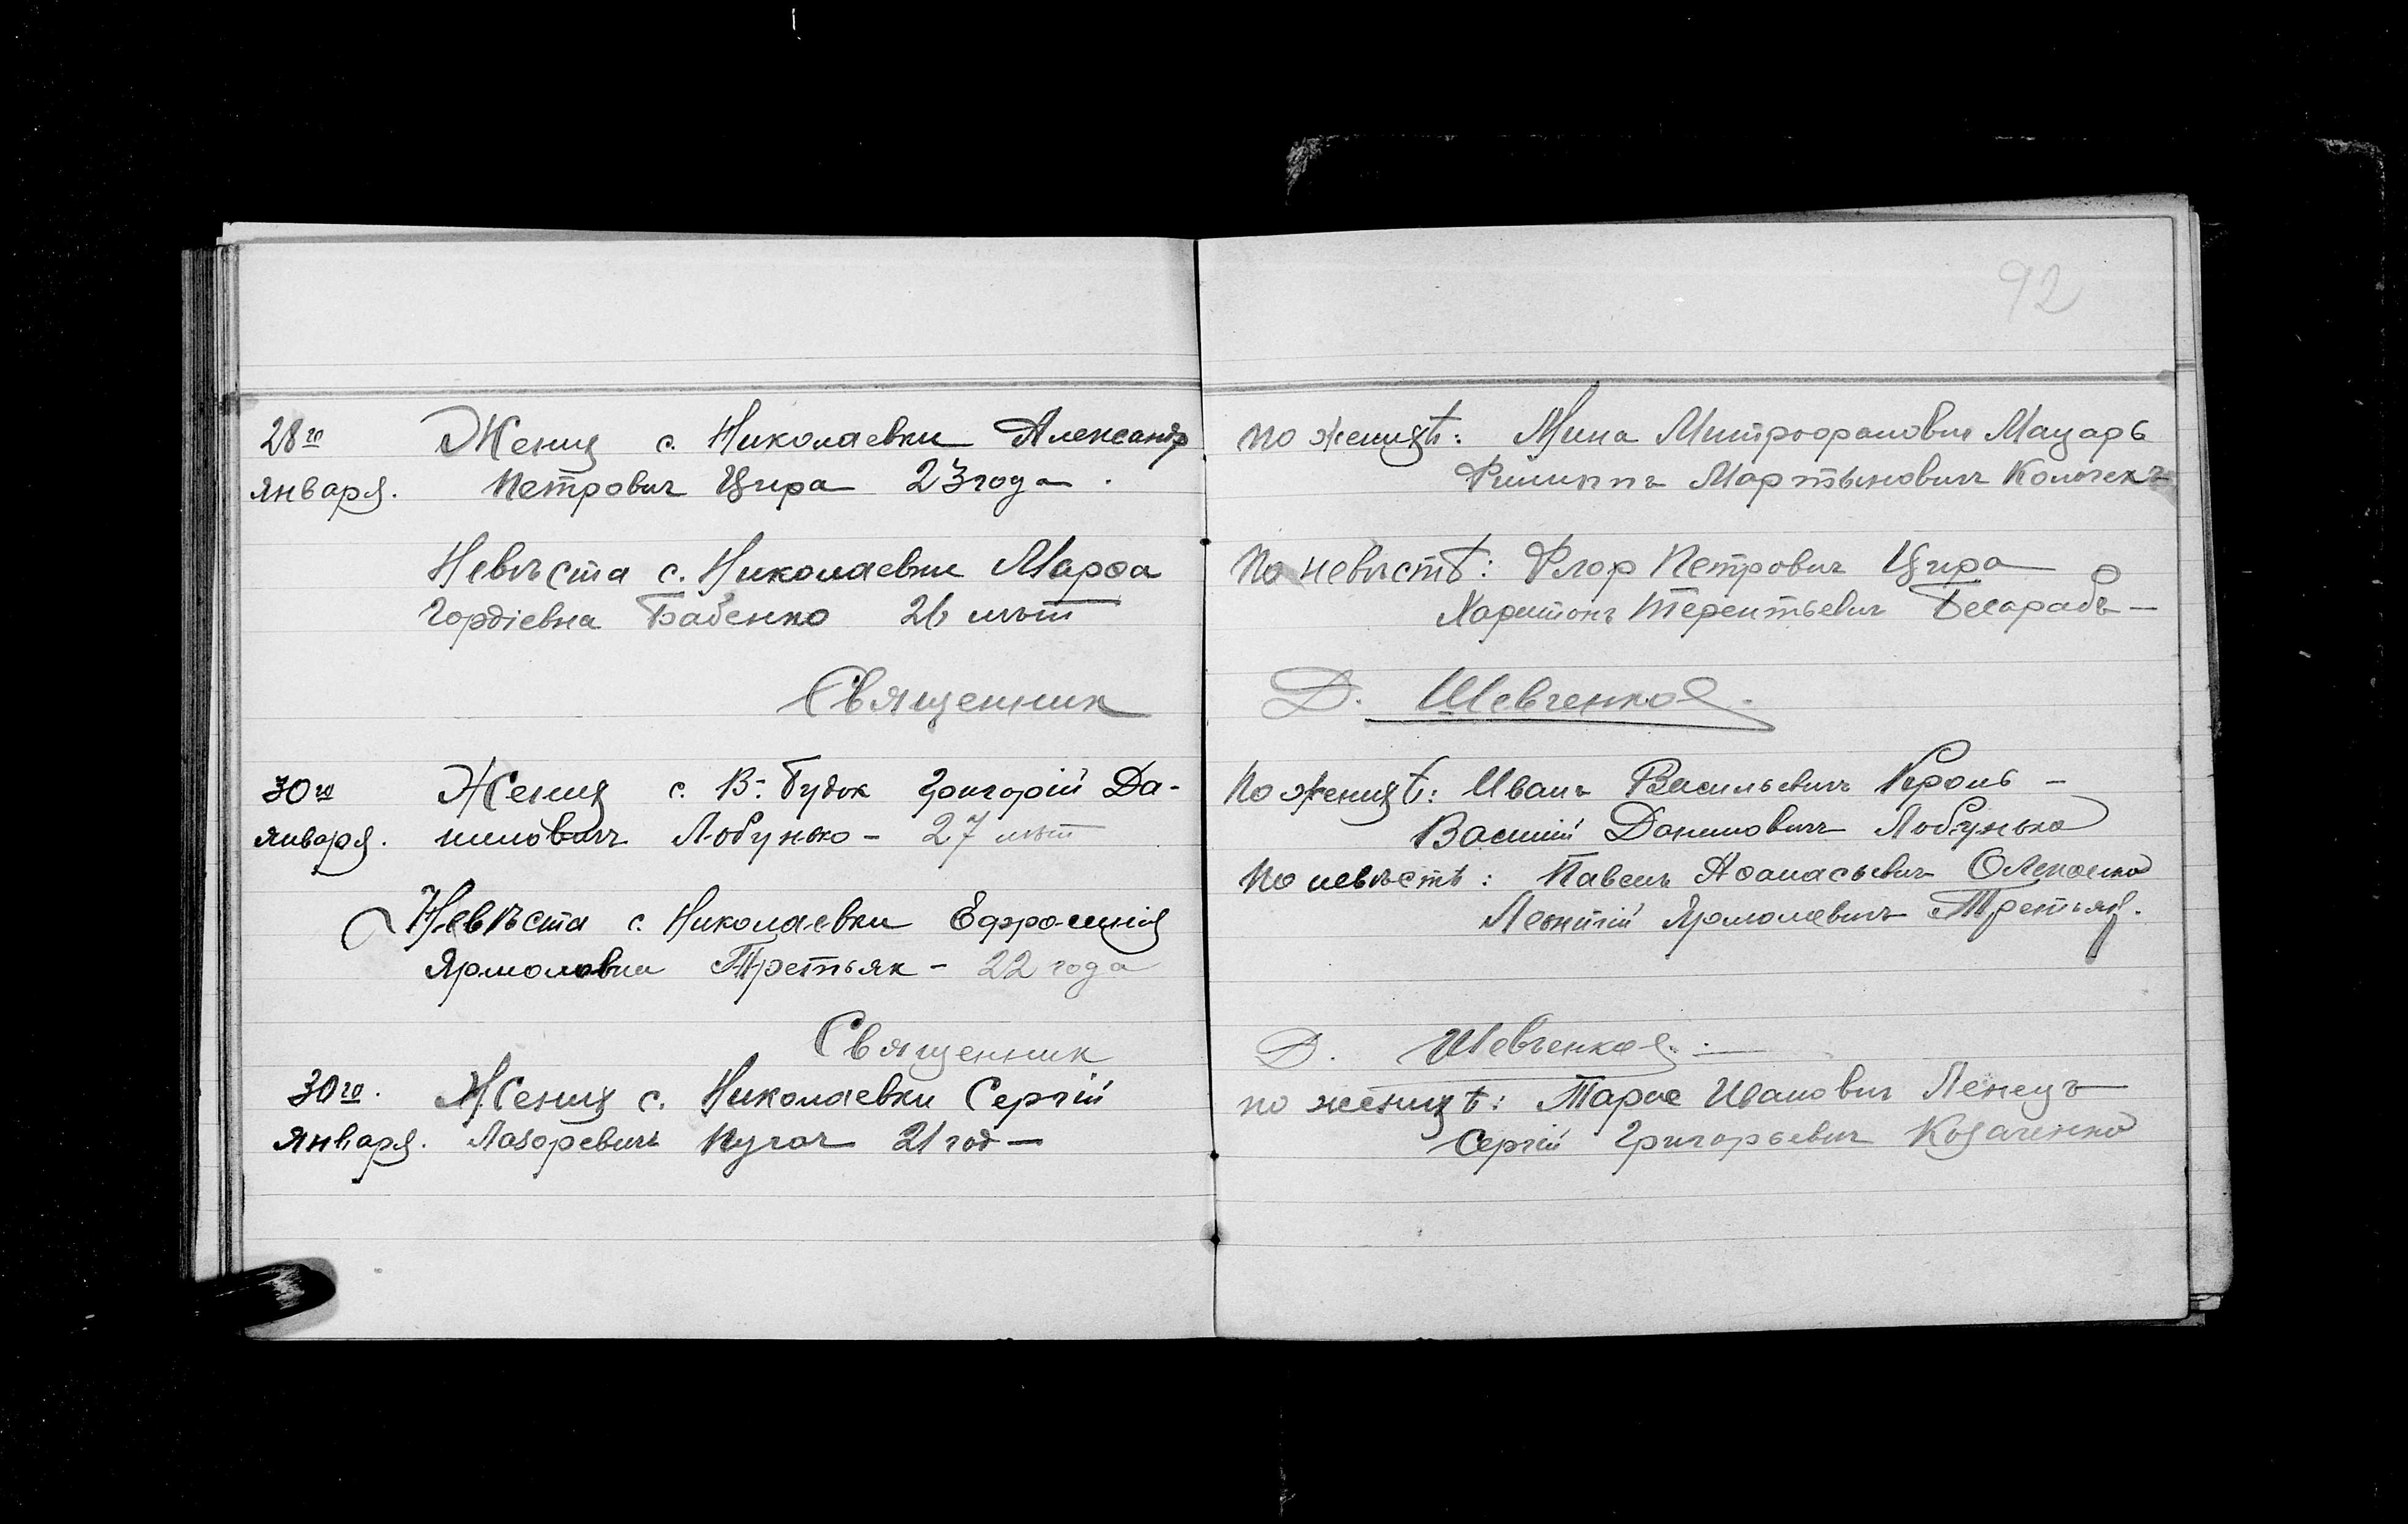 92
28го Жених с. Николаевки Александр
января. Петрович Цира 23 года.
Невѣста с. Николаевки Марѳа
Гордіевна Бабенко 26 лѣт
Священник
30го Жених с. В-. Будок Григорій Да-
января. нилович Лобунько - 27 лѣт
Невѣста с. Николаевки Ефросинія
Ярмоловна Третьяк - 22 года
Священник
30го. Жених с. Николаевки Сергій
января. Лазоревичъ Пугач 21 год —
по женихѣ: Мина Митрофанович Мацарь
Филиппъ Мартыновичъ
По невѣстѣ: Флор Петрович Цира
Харитонъ Терентьевич Бесарабъ —
Д. Шевченко.
По женихѣ: Иванъ Васильевичъ Кроль -
Василій Данилович Лобунько
По невѣстѣ: Павелъ Аѳанасьевич
Леонтій Ярмолаевичъ Третьяк.
Д. Шевченко.
по женихѣ: Тарас Иванович Ленецъ
Сергій Григорьевич Козаченко